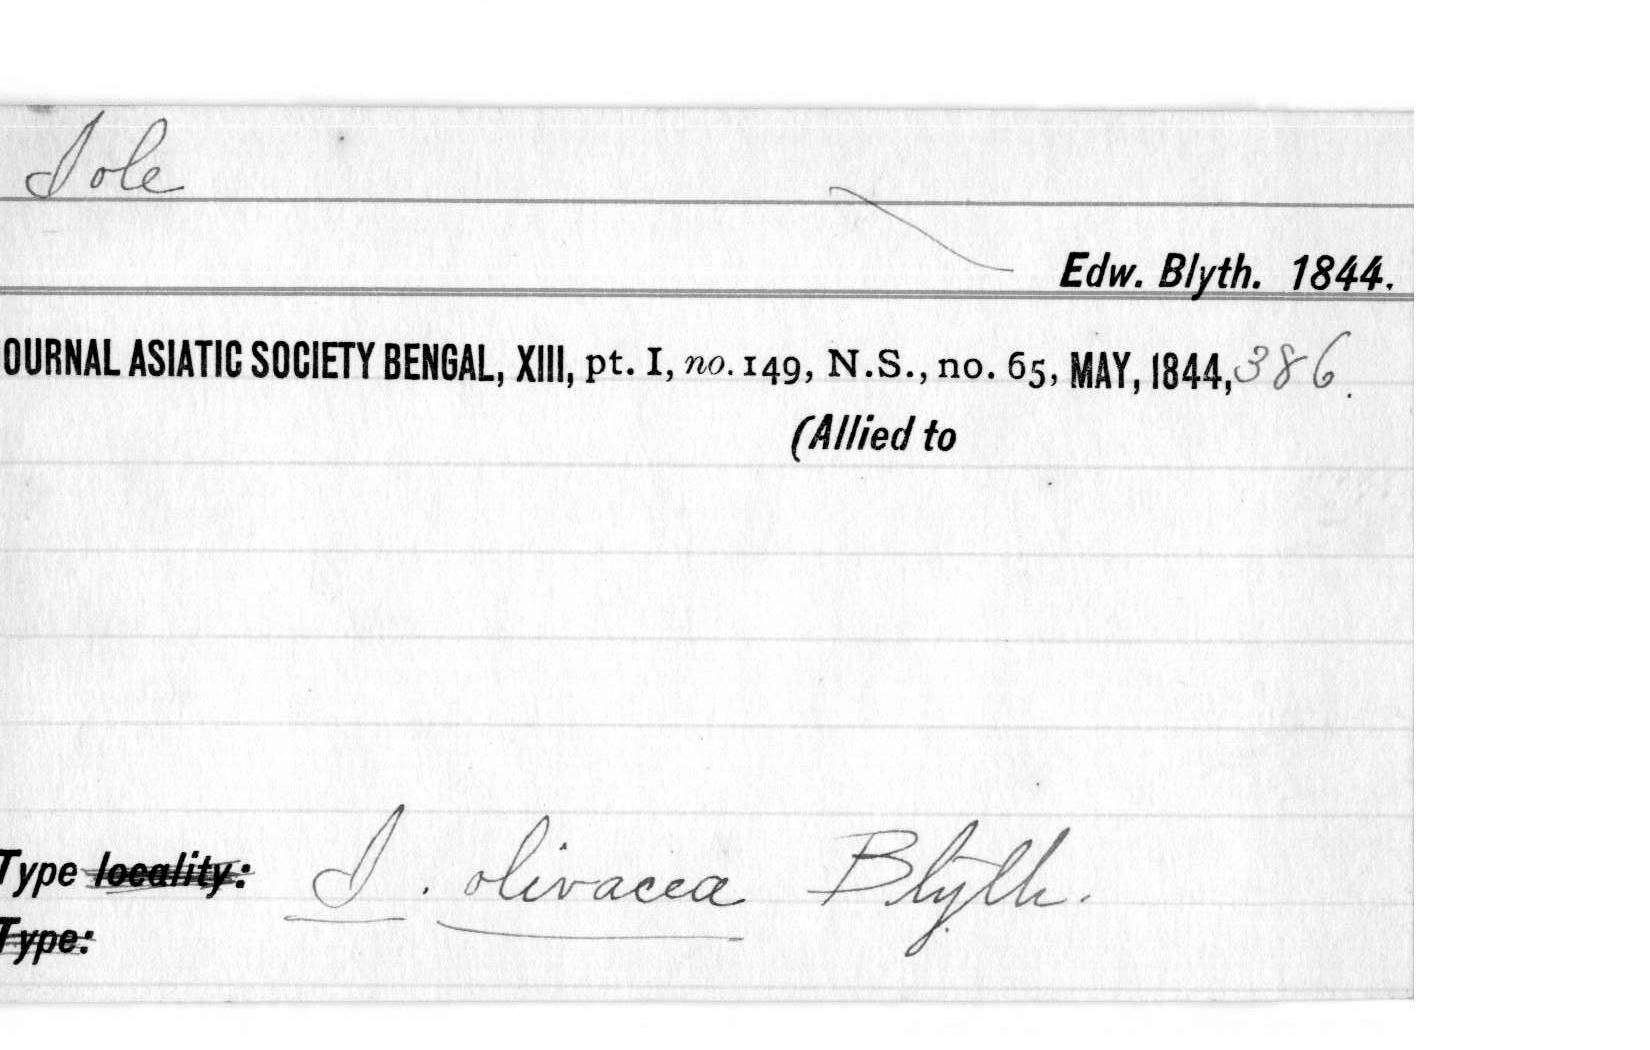 Iole
Edw. Blyth. 1844.
OURNAL ASIATIC SOCIETY BENGAL, XIII, pt. I, no. 149, N.S., no. 65, MAY, 1844, 386.
(Allied to
Type locality: I. olivacea Blyth.
Type: